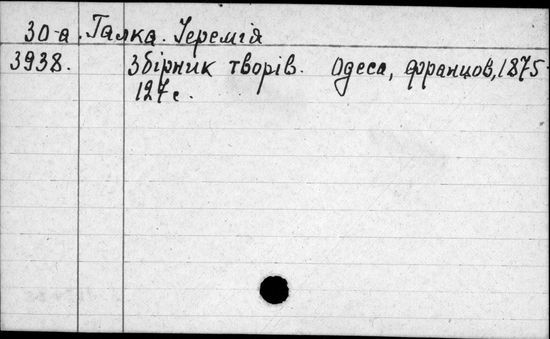 30-а. Галка. Іеремія
3938. Збірник творів. Одеса, Францов, 1875
127 с.